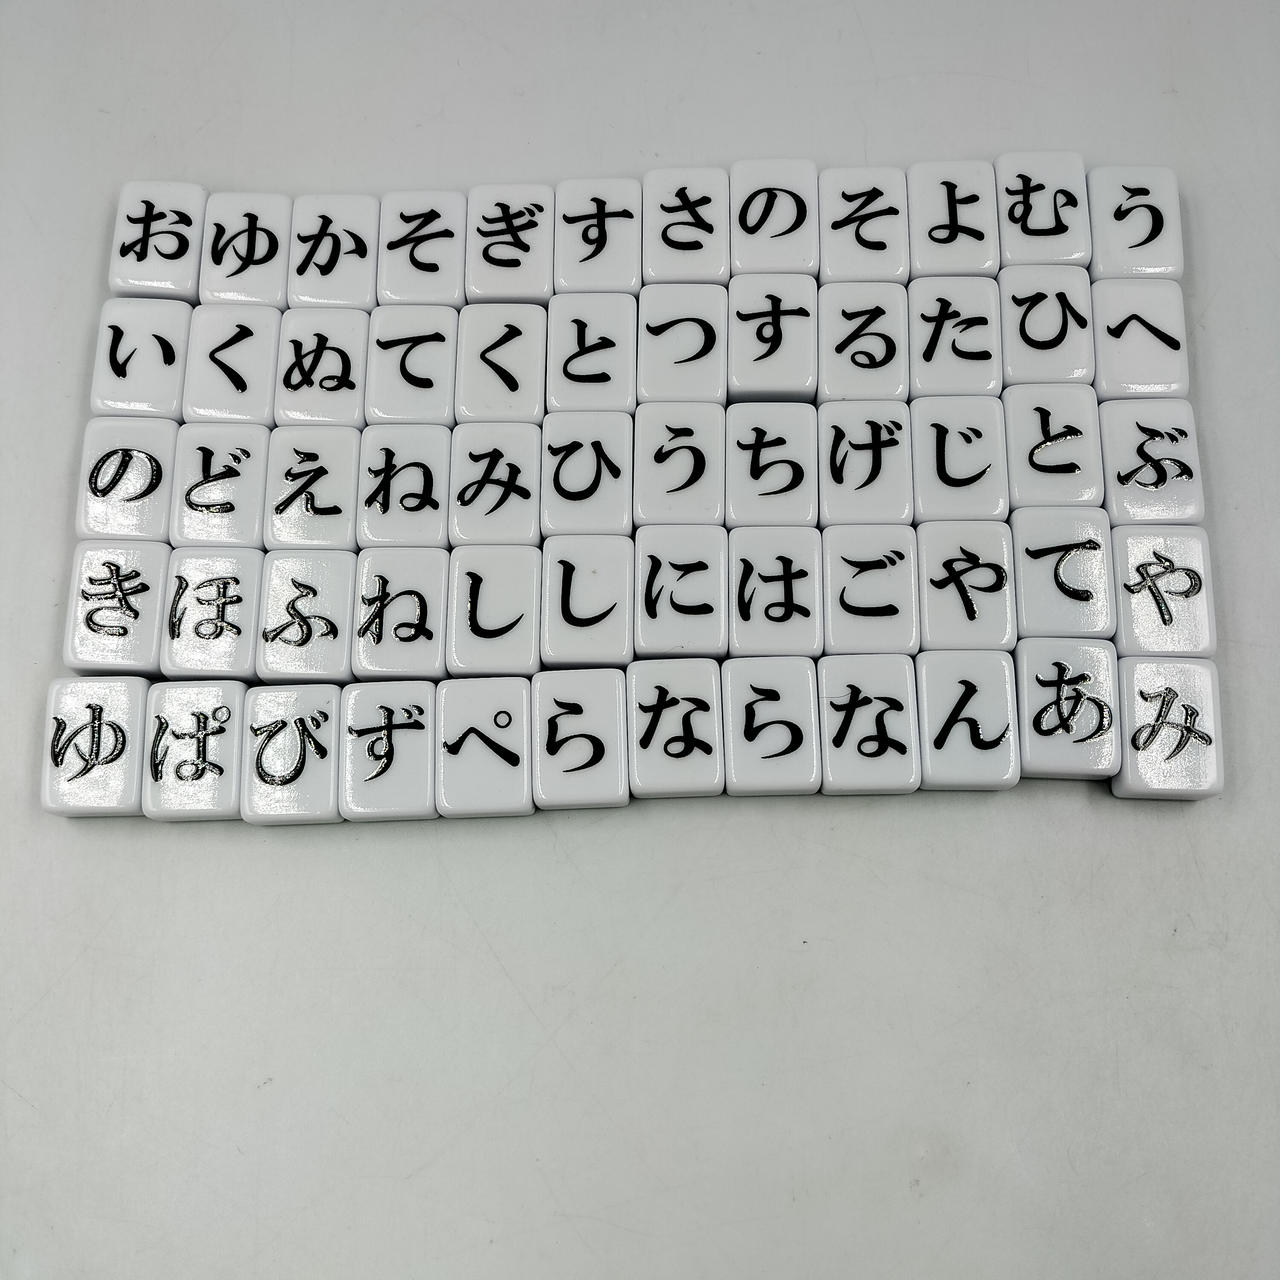 おゆかそぎすさのそよむう
いくぬてくとつするたひへ
のどえねみひうちげじとぶ
きほふねししにはごやてや
ゆぱびずぺらならなんあみ